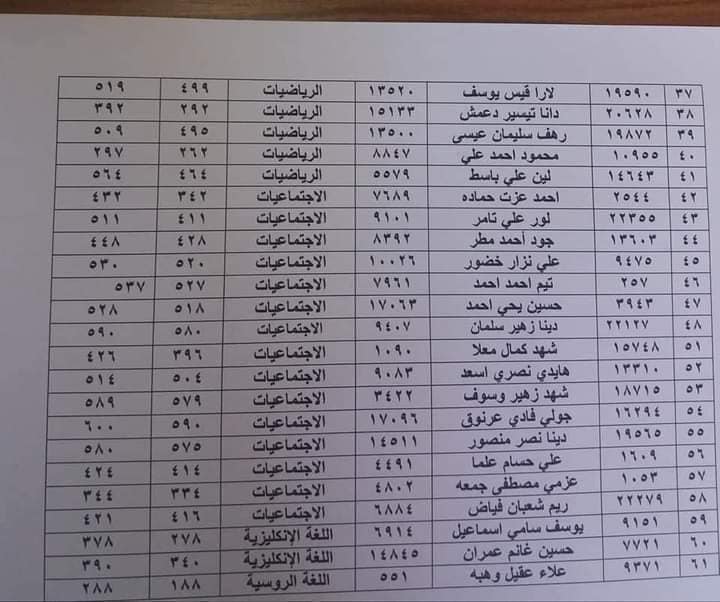 ٣٧ ١٩٥٩٠ لارا قيس يوسف ١٣٥٢٠ الرياضيات ٤٩٩ ٥١٩
٣٨ ٢٠٦٢٨ دانا تيسير دعمش ١٥١٣٣ الرياضيات ٢٩٢ ٣٩٢
٣٩ ١٩٨٧٢ رهف سليمان عيسى ١٣٥٠٠ الرياضيات ٤٩٥ ٥٠٩
٤٠ ١٠٩٥٥ محمود احمد علي ٨٨٤٧ الرياضيات ٢٦٢ ٢٩٧
٤١ ١٤٦٤٣ لين علي باسط ٥٥٧٩ الرياضيات ٤٦٤ ٥٦٤
٤٢ ٢٥٤٤ احمد عزت حماده ٧٦٨٩ الاجتماعيات ٣٤٢ ٤٣٢
٤٣ ٢٢٣٥٥ لور علي تامر ٩١٠١ الاجتماعيات ٤١١ ٥١١
٤٤ ١٣٦٠٣ جود أحمد مطر ٨٣٩٢ الاجتماعيات ٤٢٨ ٤٤٨
٤٥ ٩٤٧٥ علي نزار خضور ١٠٠٢٦ الاجتماعيات ٥٢٠ ٥٣٠
٤٦ ٢٥٧ تيم احمد احمد ٧٩٦١ الاجتماعيات ٥٢٧ ٥٣٧
٤٧ ٣٩٤٣ حسين يحي احمد ١٧٠٦٣ الاجتماعيات ٥١٨ ٥٢٨
٤٨ ٢٢١٢٧ دينا زهير سلمان ٩٤٠٧ الاجتماعيات ٥٨٠ ٥٩٠
٥١ ١٥٧٤٨ شهد كمال معلا ١٠٩٠ الاجتماعيات ٣٩٦ ٤٢٦
٥٢ ١٣٣١٠ هايدي نصري اسعد ٩٠٨٣ الاجتماعيات ٥٠٤ ٥١٤
٥٣ ١٨٧١٥ شهد زهير وسوف ٣٤٢٢ الاجتماعيات ٥٧٩ ٥٨٩
٥٤ ١٦٢٩٤ جولي فادي عرنوق ١٧٠٩٦ الاجتماعيات ٥٩٠ ٦٠٠
٥٥ ١٩٥٦٥ دينا نصر منصور ١٤٥١١ الاجتماعيات ٥٧٥ ٥٨٠
٥٦ ١٦٠٩ علي حسام علما ٤٤٩١ الاجتماعيات ٤١٤ ٤٢٤
٥٧ ١٠٥٣ عزمي مصطفى جمعه ٤٨٠٢ الاجتماعيات ٣٣٤ ٣٤٤
٥٨ ٢٢٢٧٩ ريم شعبان فياض ٦٨٨٤ الاجتماعيات ٤١٦ ٤٢١
٥٩ ٩١٥١ يوسف سامي اسماعيل ٦٩١٤ اللغة الإنكليزية ٢٧٨ ٣٧٨
٦٠ ٧٧٢١ حسين غانم عمران ١٤٨٤٥ اللغة الإنكليزية ٣٤٠ ٣٩٠
٦١ ٩٣٧١ علاء عقيل وهبه ٥٥١ اللغة الروسية ١٨٨ ٢٨٨